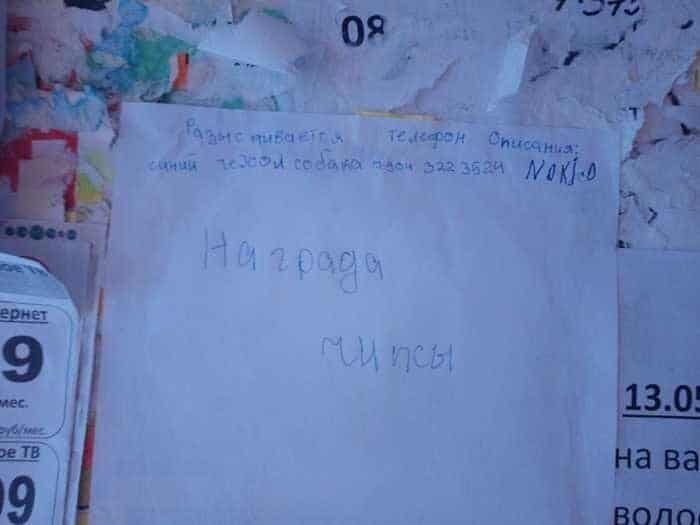 08
Разыскивается телефон Описания:
синий чехол собака 322 3524
Награда
чипсы
ое ТВ
ернет
9
мес.
руб/мес.
ое ТВ
99
13.05
на ва
водо